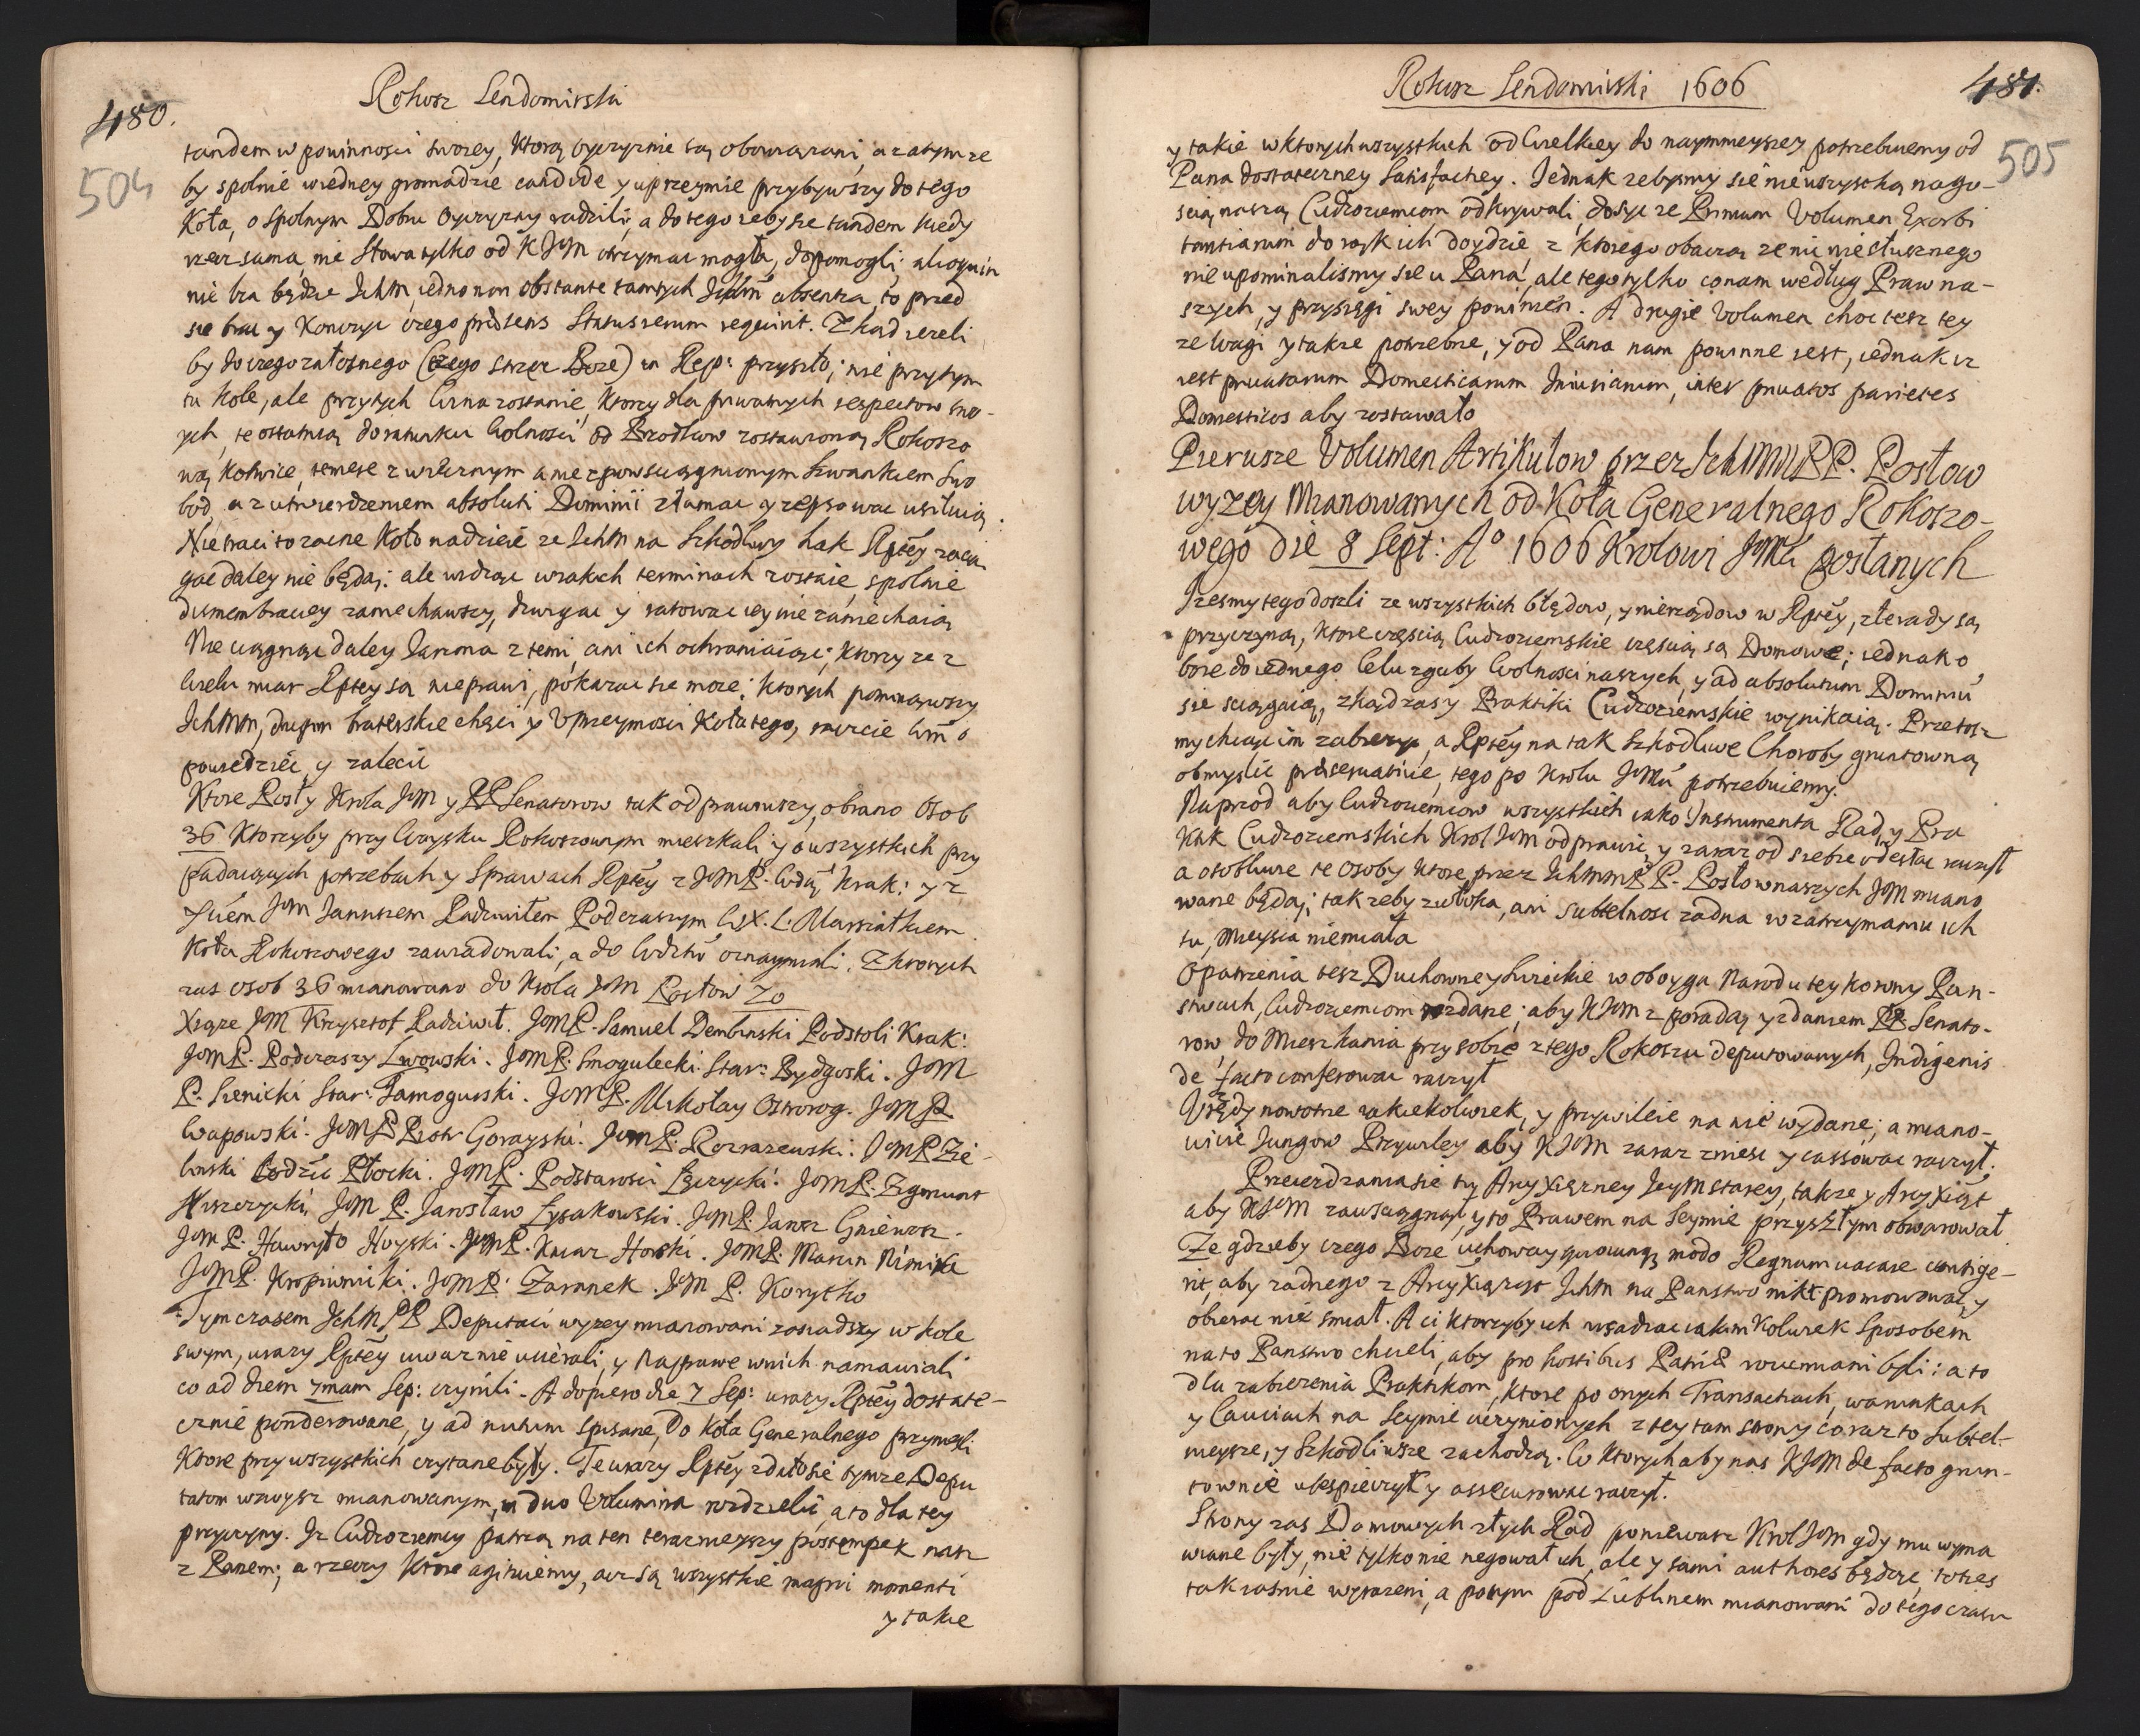 480.
504
Rokosz Sendomirski
tandem w powinności swoiey, ktorą oyczyznie są obowiązani, a zatym ze
by spolnie w iedney gromadzie candide y uprzeymie przybywszy do tego
Koła, o spolnym Dobru Oyczyzny radzili, a do tego zeby sie tandem kiedy
rzecz sama, nie słowa tylko od KJM otrzymac mogła, dopomogli, alioquin
nie bra będzie Ichm, iedno non obstante tamtych Ichm absentia, to przed
sie brac y konczyc czego præsens status rerum requirit. Zkad iezeli
by do czego załosnego (czego strzez Boze) w Rep: przyszło; nie przytym
tu Kole, ale przytych wina zostanie, ktorzy dla prywatnych respectow swo-
ych, te ostatnią do ratunku wolności od Przodkow zostawioną Rokoszo
wą Kotwice, temere z wiecznym a niezpowsciągnionym szwankiem swo
bod a z utwierdzeniem absoluti Dominii złamac y zepsowac usiłuią.
Nie traci to zacne Koło nadzieie ze Ichm na szkodliwy hak Rptey zacią
gac daley nie będą: ale widząc w iakich terminach zostaie, spolnie
dismembraciey zaniechawszy, dzwigac y ratowac iey nie zaniechaią
Nie ciągnąc daley Jarzma z temi, ani ich ochraniaiąc; ktorzy ze z
wielu miar Rptey są nieprawi, pokazac sie moze; ktorych pominąwszy
Ichmm, drugim braterskie chęci y uprzeymosci Koła tego, racżcie Wm o
powiedziec, y zalecic
Ktore Posły Krola JM y PP Senatorow tak odprawiwszy, obrano Osob
36 Ktorzyby przy Woysku Rokoszowym mieszkali, y o wszystkich przy
padaiących potrzebach y Sprawach Rptey z JMP. Wdą Krak: y z
Xciem JM Januszem Radziwiłem Podczaszym WX.L. Marszałkiem
Koła Rokoszowego zawiadowali, a do Wdztw oznaymili. Z ktorych
zas osob 36 mianowano do Krola JM Posłow 20
Xiąze JM Krzysztof Radziwił. JMP. Samuel Dembinski Podstoli Krak:
JMP. Podczaszy Lwowski. JMP. Smogulecki Star: Bydgoski. JM
P. Sienicki Star: Tarnogurski. JMP. Mikołay Ostrorog. JMP.
Wapowski. JMP Piotr Gorayski. JMP. Rozrazewski. JMP Zie-
linski Sędzic Płocki. JMP. Podstarosci Łęczycki. JMP. Zygmunt
Hiszczycki, JM P. Jarosław Łysakowski. JMP. Janusz Gniewosz.
JM P. Hawryło Hoyski. JMP. Kniaz Horski. JMP. Marcin Nimira
JMP. Kropiwnicki. JMP. Zarnnek. JM P. Korytko
Tym czasem Ichm PP Deputaci wyzey mianowani zasiadszy w kole
swym, urazy Rptey uwaznie ucierali, y Naprawe w nich namawiali
co ad diem 7mam Sep: czynili. A dopiero die 7 Sep: urazy Rptey dostate-
cznie ponderowane, y ad nutum spisane, Do Koła Generalnego przynieśli
Ktore przy wszystkich czytane były. Te urazy Rptey zdało sie tymze Depu
tatom wzwysz mianowanym, in duo Volumina rozdzielic, a to dla tey
przyczyny. Iz Cudzoziemcy patrzą na ten teraznieyszy postempek nasz
z Panem; a rzeczy Ktore agituiemy, acz są wszystkie magni momenti
y takie
Rokosz Sendomirski 1606
481.
505
y takie w ktorych wszystkich od wielkiey do naymnieyszey potrzebuiemy od
Pana dostateczney Satisfactiey. Jednak zebysmy sie nie wszystką nago-
scią naszą Cudzoziemcom odkrywali, dosyc ze Primum Volumen Exorbi
tantiarum do rąk ich doydzie z ktorego obaczą ze nic niesłusznego
nie upominalismy sie u Pana, ale tego tylko co nam według Praw na-
szych, y przysięgi swey powinien. A drugie Volumen choc tesz tey
ze wagi y takze potrzebne, y od Pana nam powinne iest, iednak iz
iest privatarum Domesticarum Iniuriarum, inter privatos parietes
Domesticos aby zostawało
Pierwsze Volumen Artikułow przez Ichmm PP. Posłow
wyzey Mianowanych od Koła Generalnego Rokoszo-
wego die 8 Sept: Ao 1606 Krolowi JMci posłanych
Izesmy tego doszli ze wszystkich błędow, y nierządow w Rptey, złe rady są
przyczyną, ktore częscią Cudzoziemskie częscią są Domowe; iednako
boze do iednego Celu zguby Wolnosci naszych, y ad absolutum Dominiu
sie sciągaią, zkąd zasy Praktiki Cudzoziemskie wynikaią. Przetosz
my chcąc im zabiezyc, a Rptey na tak szkodliwe Choroby gruntowną
obmyslic præservatiuę, tego po Krolu JMci potrzebuiemy.
Naprzod aby Cudzoziemcow wszystkich iako Instrumenta Rad, y Pra
ktik Cudzoziemskich Krol JM odprawic, y zaraz od siebie odesłac raczył
a osobliwie te Osoby ktore przez Ichmm PP. Posłow naszych JM miano
wane będą; tak zeby zwłoka, ani subtelnosc zadna w zatrzymaniu ich
tu, mieysca niemiała
Opatrzenia tesz Duchowne y Swieckie w oboyga Narodu tey Korony Pan-
stwach, Cudzoziemcom rozdane; aby KJM z poradą y zdaniem PP. Senato-
row, do Mieszkania przy sobie z tego Rokoszu deputowanych, Indigenis
de facto conferowac raczył
Urzędy nowotne iakiekolwiek, y przywileie na nie wydane; a miano-
wicie Jungow Przywiley aby KJM zaraz zniesc y cassowac raczył.
Przeierdzania sie ty Arcyxiężney Jeym starey, takze y Arcyxiąt
aby KJM zawsciągnął, y to Prawem na Seymie przyszłym obwarował
Ze gdzieby czego Boze uchoway quocunq3 modo Regnum vacare contige-
rit, aby zadnego z Arcyxiążąt Ichm na Panstwo nikt promowowac, y
obierac nie smiał. A ci ktorzyby ich wsadzac iakimkolwiek sposobem
na to Panstwo chcieli, aby pro hostibus Patriæ rozumiani byli: a to
dla zabiezenia Praktikom, ktore po onych Transactiach, warunkach
y Cautiach na Seymie uczynionych z tey tam strony co raz to subtel-
nieysze, y Szkodliwsze zachodzą. W ktorych aby nas KJM de facto grun-
townie ubespieczył y assecurowac raczył.
Strony zas Domowych złych Rad poniewasz Krol JM gdy mu wyma
wiane były, nie tylko nie negował ich, ale y sami authores będąc, toties
tak iasnie wyrazeni, a potym pod Lublinem mianowani do tego czasu